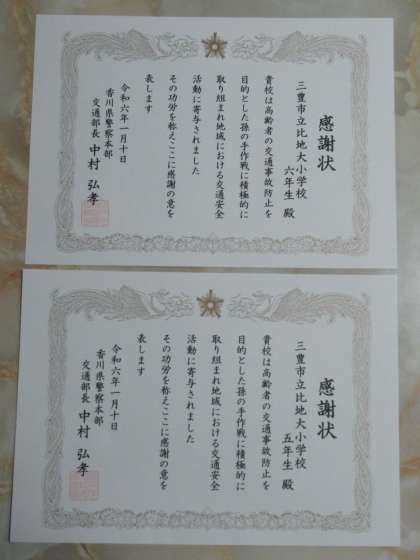 感謝状
三豊市立比地大小学校
六年生 殿
貴校は高齢者の交通事故防止を
目的とした孫の手作戦に積極的に
取り組まれ地域における交通安全
活動に寄与されました
その功労を称えここに感謝の意を
表します
令和六年一月十日
香川県警察本部
交通部長 中村 弘孝
感謝状
三豊市立比地大小学校
五年生 殿
貴校は高齢者の交通事故防止を
目的とした孫の手作戦に積極的に
取り組まれ地域における交通安全
活動に寄与されました
その功労を称えここに感謝の意を
表します
令和六年一月十日
香川県警察本部
交通部長 中村 弘孝